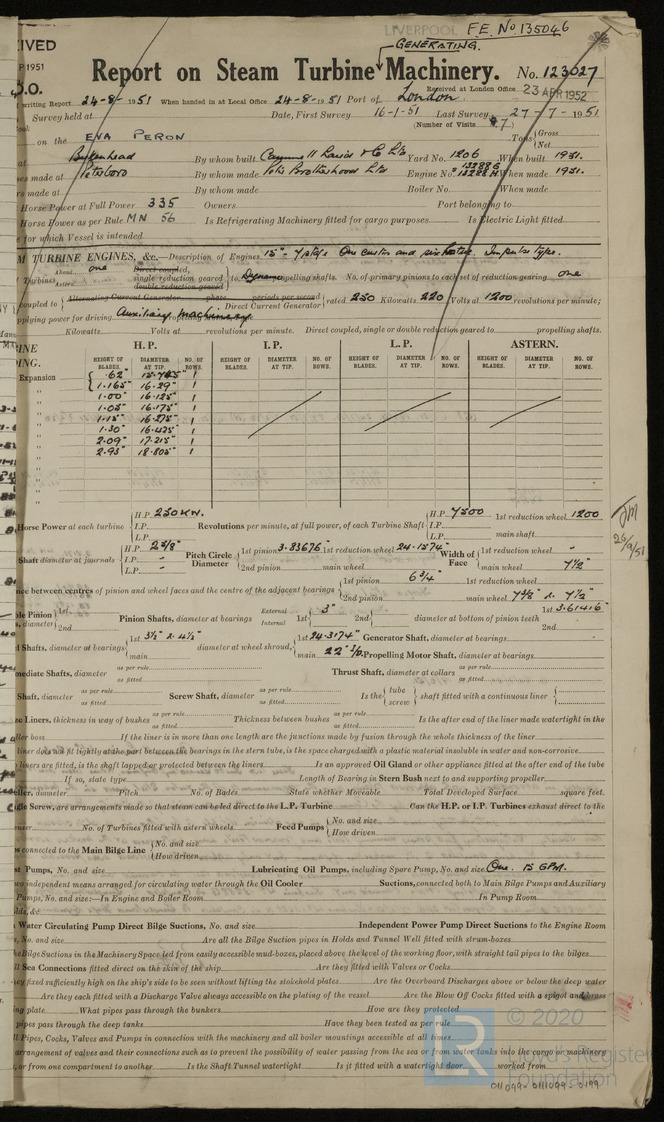 LIVERPOOL F.E. No 135046
GENERATING.
Report on Steam Turbine Machinery. No. 123027
P 1951
Received at London Office 23 APR 1952
writing Report 24-8-1951 When handed in at Local Office 24-8-1951 Port of London
Survey held at Date, First Survey 16-1-51 Last Survey 27-7-1951
(Number of Visits 7)
on the EVA PERON Tons Gross Net
at Birkenhead By whom built Yard No. 1206 When built 1951.
es made at Peterboro By whom made Peter Brotherhood Ltd Engine No. When made 1951.
rs made at By whom made Boiler No. When made
Horse Power at Full Power 335 Owners Port belonging to
Horse Power as per Rule MN 56 Is Refrigerating Machinery fitted for cargo purposes Is Electric Light fitted
e for which Vessel is intended
M TURBINE ENGINES, &c.—Description of Engines
Turbines Ahead one Astern Direct coupled, single reduction geared double reduction geared to propelling shafts. No. of primary pinions to each set of reduction gearing one
coupled to Alternating Current Generator phase periods per second Direct Current Generator rated 250 Kilowatts 220 Volts at 1200 revolutions per minute;
pplying power for driving Auxiliary machinery.
Kilowatts Volts at revolutions per minute. Direct coupled, single or double reduction geared to propelling shafts.
H.P. I.P. L.P. ASTERN.
HEIGHT OF BLADES. DIAMETER AT TIP. NO. OF ROWS. HEIGHT OF BLADES. DIAMETER AT TIP. NO. OF ROWS. HEIGHT OF BLADES. DIAMETER AT TIP. NO. OF ROWS. HEIGHT OF BLADES. DIAMETER AT TIP. NO. OF ROWS.
Expansion .62" 1
1.165" 16.29" 1
1.00" 16.125" 1
1.05" 16.175" 1
1.15" 16.275" 1
1.30" 16.425" 1
2.09" 17.215" 1
2.95" 18.805" 1
Horse Power at each turbine H.P. 250 KW. I.P. L.P. Revolutions per minute, at full power, of each Turbine Shaft H.P. 7500 I.P. L.P. 1st reduction wheel 1200 main shaft
Shaft diameter at journals H.P. 2 5/8" I.P. - L.P. - Pitch Circle Diameter 1st pinion 3.83676" 1st reduction wheel 24.1574" 2nd pinion main wheel Width of Face 1st reduction wheel - main wheel 7 1/2"
nce between centres of pinion and wheel faces and the centre of the adjacent bearings 1st pinion 6 3/4" 1st reduction wheel 2nd pinion main wheel 7 3/8" & 7 1/2"
ble Pinion s, diameter 1st 2nd Pinion Shafts, diameter at bearings External Internal 1st 3" 2nd diameter at bottom of pinion teeth 1st 3.61416" 2nd
l Shafts, diameter at bearings 1st 3 1/2" & 4 1/2" main diameter at wheel shroud, 1st 24.3174" main Generator Shaft, diameter at bearings Propelling Motor Shaft, diameter at bearings
mediate Shafts, diameter as per rule as fitted Thrust Shaft, diameter at collars as per rule as fitted
Shaft, diameter as per rule as fitted Screw Shaft, diameter as per rule as fitted Is the tube screw shaft fitted with a continuous liner
ze Liners, thickness in way of bushes as per rule as fitted Thickness between bushes as per rule as fitted Is the after end of the liner made watertight in the
ller boss If the liner is in more than one length are the junctions made by fusion through the whole thickness of the liner
liner does not fit tightly at the part between the bearings in the stern tube, is the space charged with a plastic material insoluble in water and non-corrosive
liners are fitted, is the shaft lapped or protected between the liners Is an approved Oil Gland or other appliance fitted at the after end of the tube
If so, state type Length of Bearing in Stern Bush next to and supporting propeller
eller, diameter Pitch No. of Blades State whether Moveable Total Developed Surface square feet.
gle Screw, are arrangements made so that steam can be led direct to the L.P. Turbine Can the H.P. or I.P. Turbines exhaust direct to the
nser No. of Turbines fitted with astern wheels Feed Pumps No. and size How driven
s connected to the Main Bilge Line No. and size How driven
st Pumps, No. and size Lubricating Oil Pumps, including Spare Pump, No. and size One. 15 GPM.
wo independent means arranged for circulating water through the Oil Cooler Suctions, connected both to Main Bilge Pumps and Auxiliary
Pumps, No. and size:—In Engine and Boiler Room In Pump Room
olds, &c
Water Circulating Pump Direct Bilge Suctions, No. and size Independent Power Pump Direct Suctions to the Engine Room
s, No. and size Are all the Bilge Suction pipes in Holds and Tunnel Well fitted with strum-boxes
he Bilge Suctions in the Machinery Space led from easily accessible mud-boxes, placed above the level of the working floor, with straight tail pipes to the bilges
ll Sea Connections fitted direct on the skin of the ship Are they fitted with Valves or Cocks
ey fixed sufficiently high on the ship's side to be seen without lifting the stokehold plates Are the Overboard Discharges above or below the deep water
Are they each fitted with a Discharge Valve always accessible on the plating of the vessel Are the Blow Off Cocks fitted with a spigot and brass
ing plate What pipes pass through the bunkers How are they protected
pipes pass through the deep tanks Have they been tested as per rule
ll Pipes, Cocks, Valves and Pumps in connection with the machinery and all boiler mountings accessible at all times
arrangement of valves and their connections such as to prevent the possibility of water passing from the sea or from water tanks into the cargo or machinery
, or from one compartment to another Is the Shaft Tunnel watertight Is it fitted with a watertight door worked from
© 2020
LR Lloyd's Register
Foundation
011099-0111099-0199